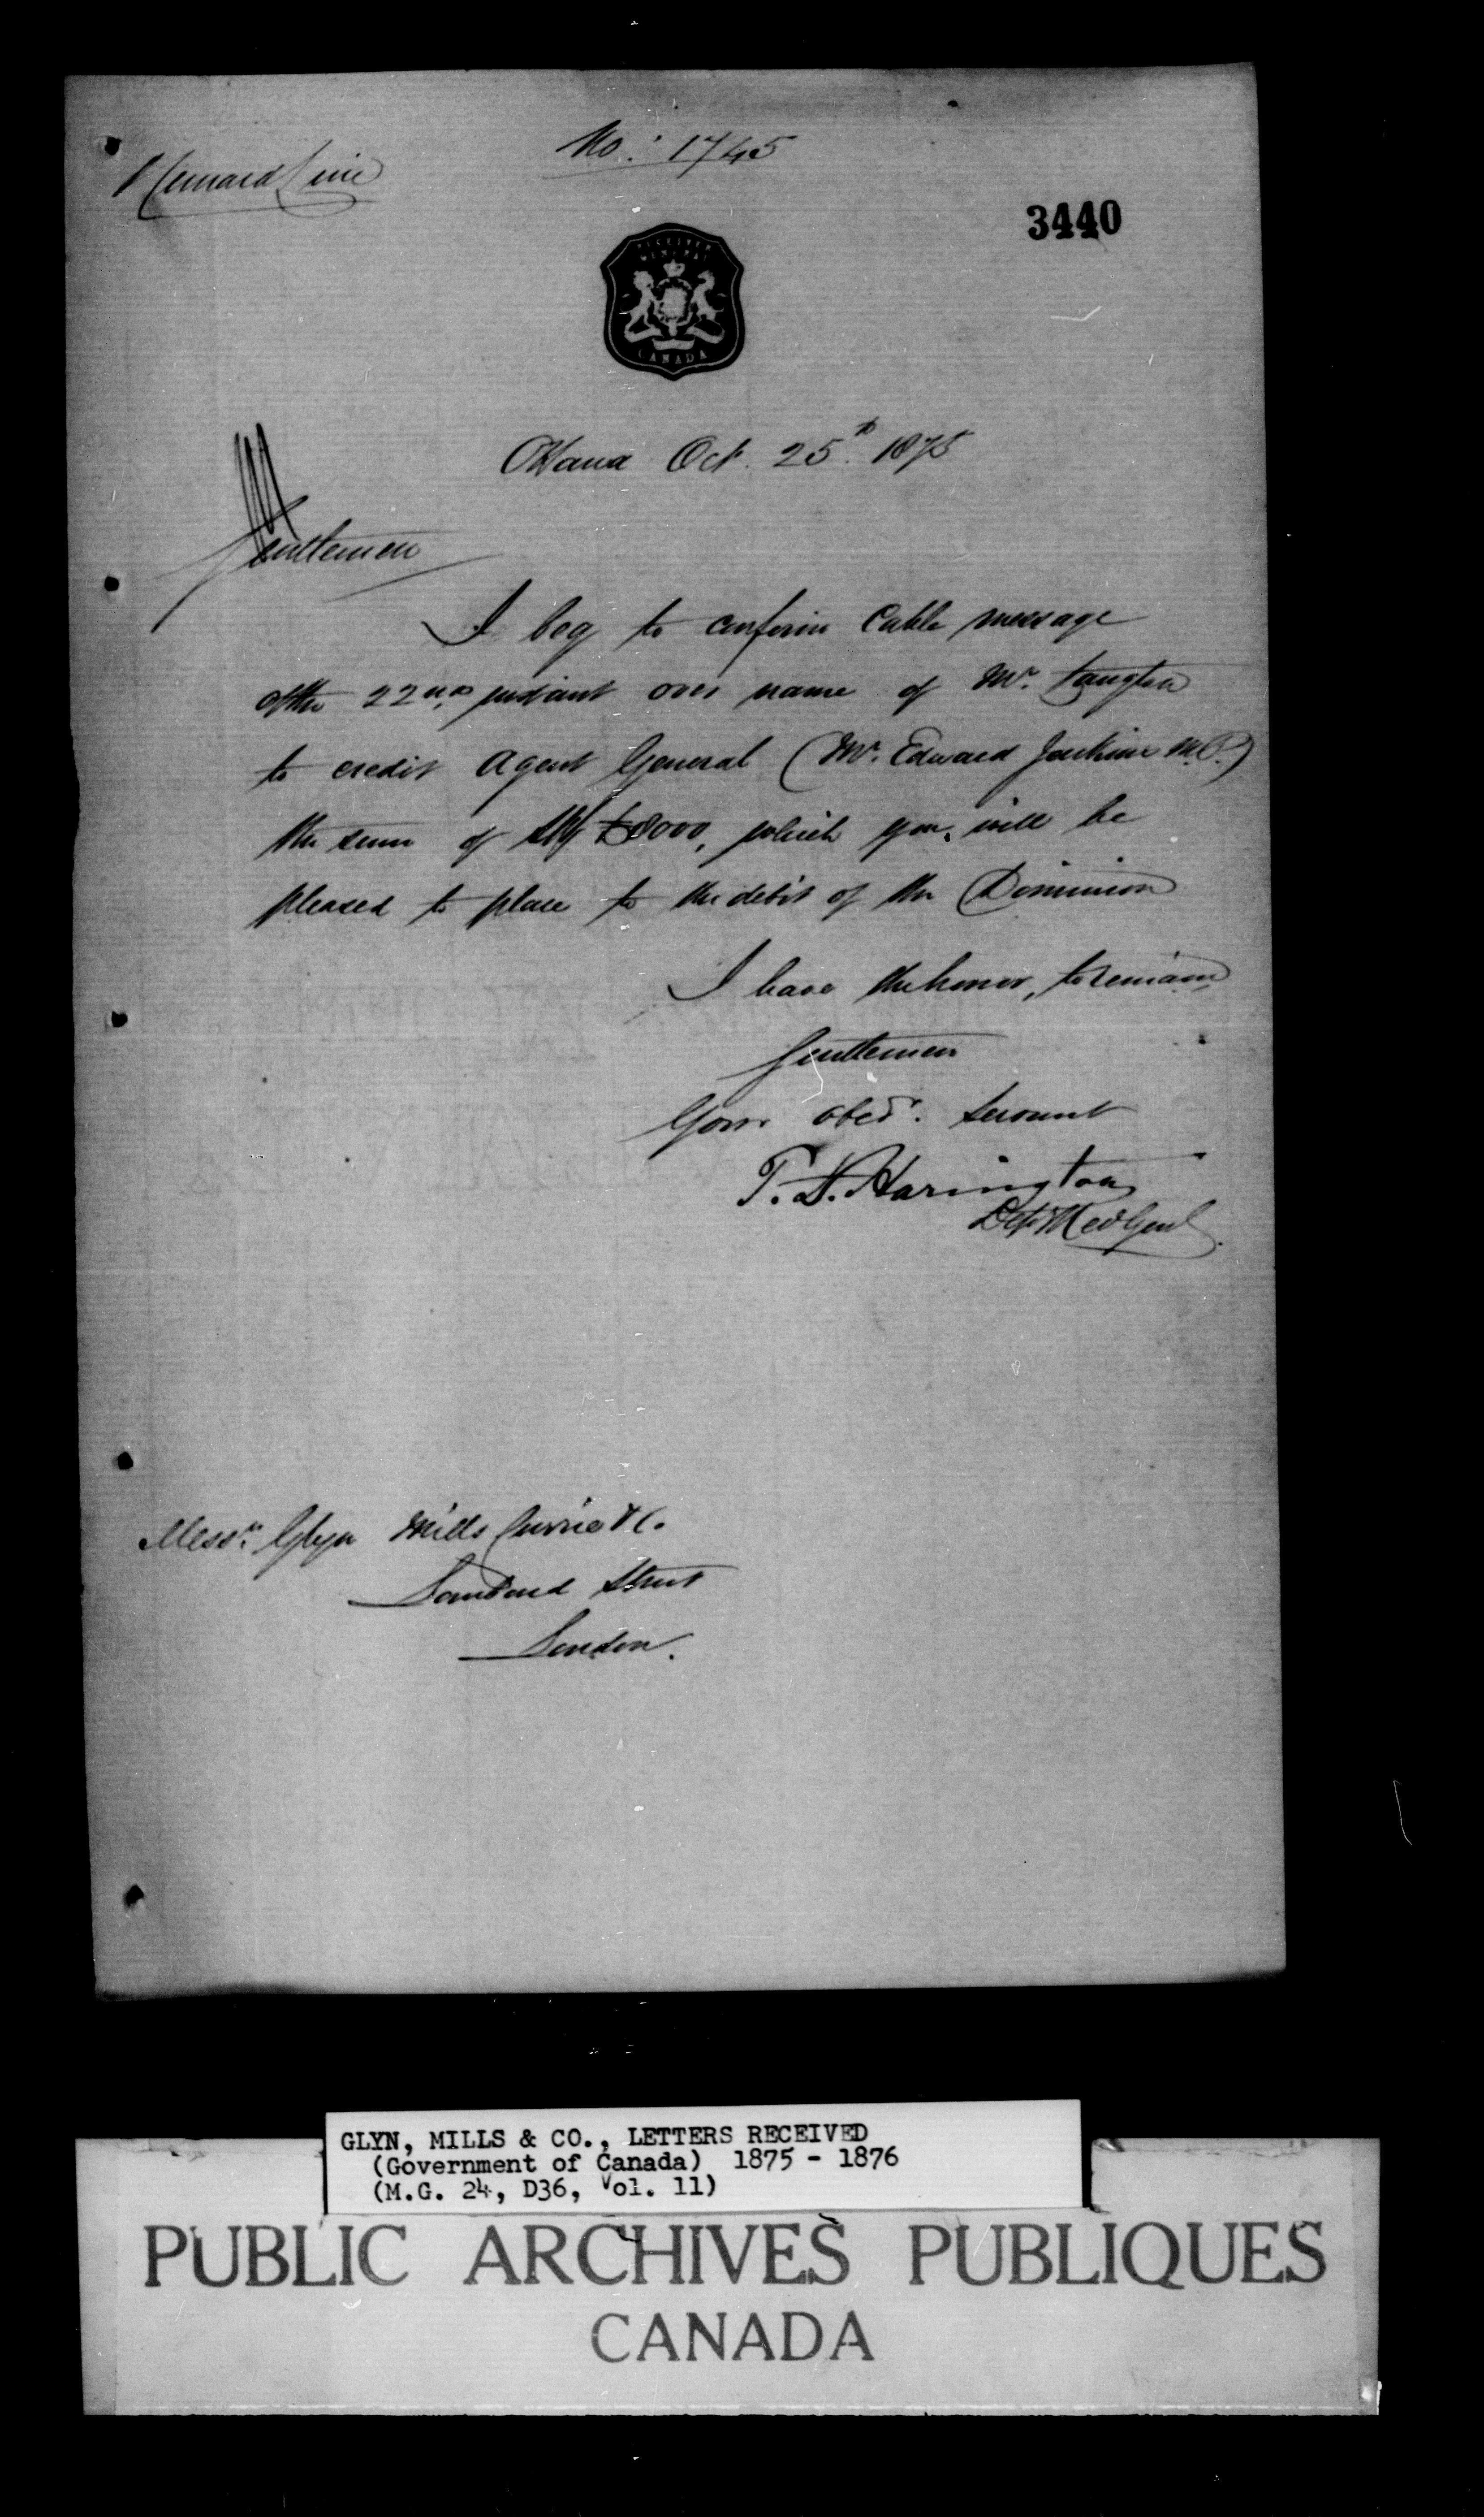 No: 1745
Cunard Line
3440
RECEIVER
GENERAL
CANADA
Ottawa Oct. 25th. 1875
Gentlemen
I beg to confirm Cable message
of the 22nd, instant over name of Mr. Langton
to credit Agent General (Mr. Edward Jenkins M.P.)
the sum of Stg £8000, which you will be
pleased to place to the debit of the Dominion
I have the honor, to remain
Gentlemen
Your obedt. Servant
T. D. Harington
Dep Rec Genl.
Messrs. Glyn Mills Currie & Co.
Lombard Street
London.
GLYN, MILLS & CO., LETTERS RECEIVED
(Government of Canada) 1875 - 1876
(M.G. 24, D36, Vol. 11)
PUBLIC ARCHIVES PUBLIQUES
CANADA